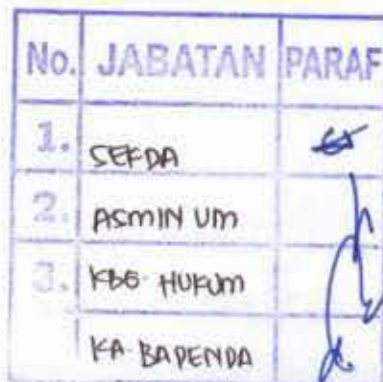 No. JABATAN PARAF
1. SEKDA
2. ASMIN UM
3. KBG HUKUM
KA BAPENDA